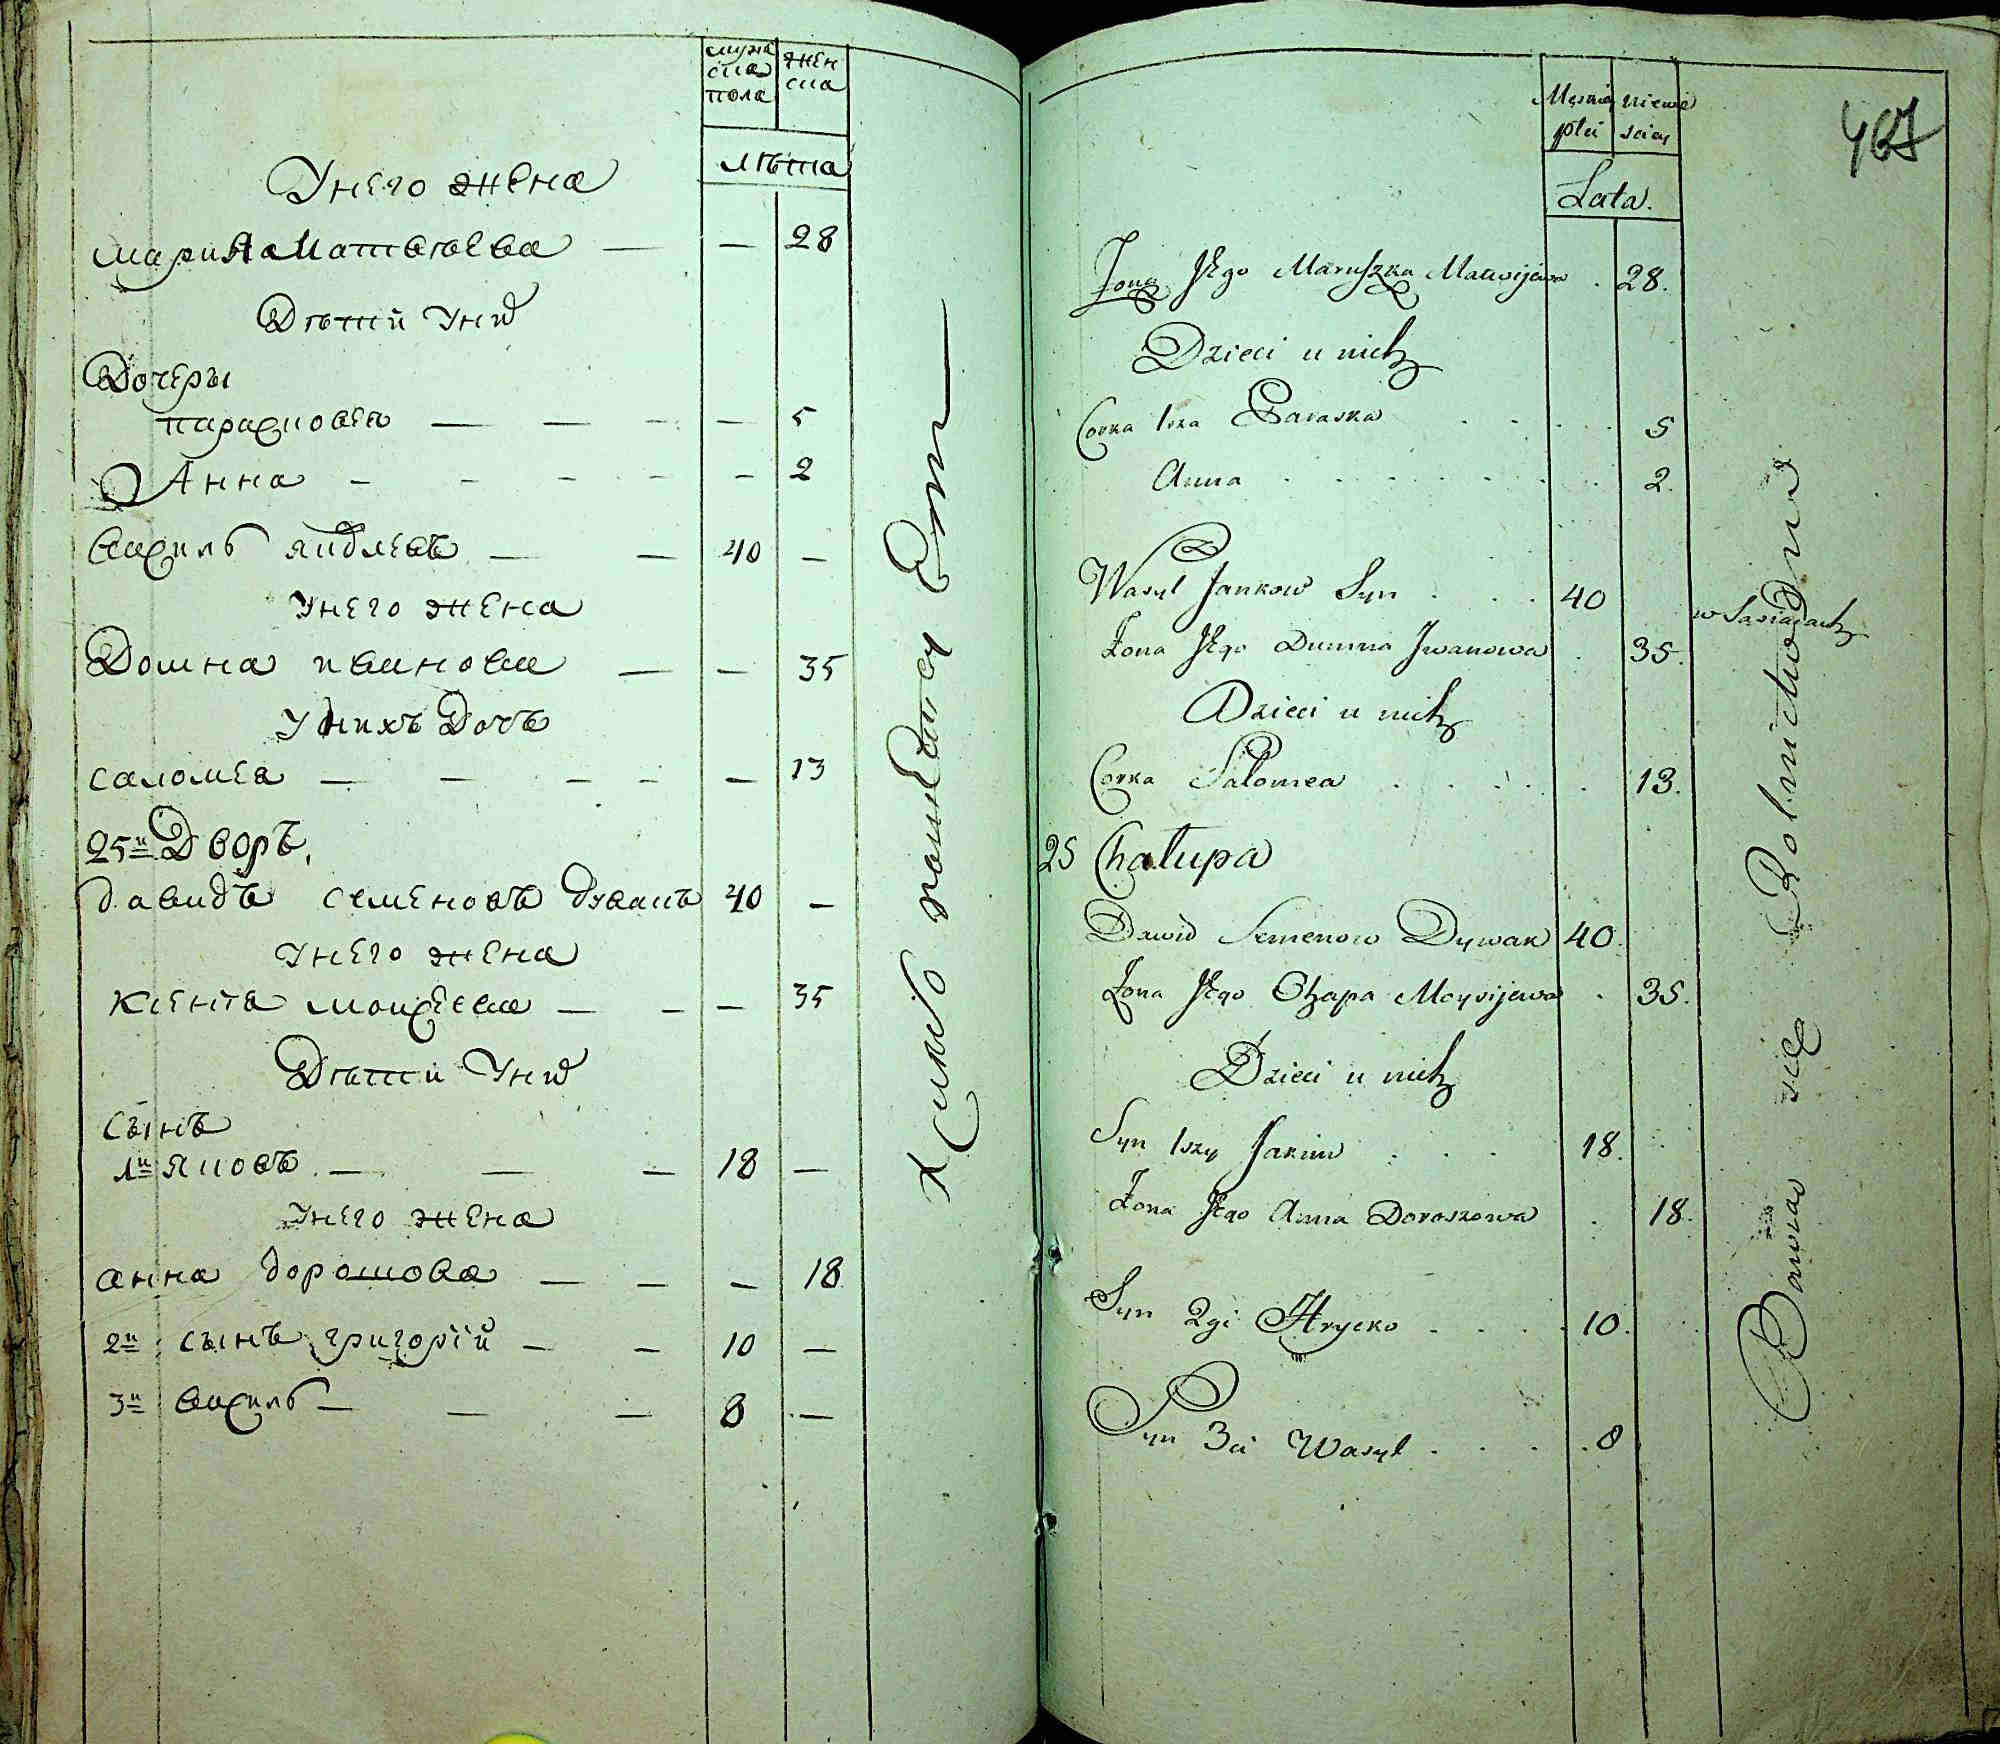 мужеска пола женска
лѣта
У него жена
Марина Матвеева — — 28
Дѣти у них
Дочеры
Парасковея — — — — 5
Анна — — — — — 2
Василь Яковлевъ — — 40 —
У него жена
Домна Иванова — — 35
У нихъ Дочь
Саломея — — — — — 13
25й Дворъ.
Давидъ Семеновъ Дуванъ 40 —
У него жена
Моисеева — — — 35
Дѣти у них
Сынъ
1й Яковъ — — — 18 —
У него жена
Анна Дорошова — — — 18
2й Сынъ Григорій — — 10 —
3й Василь — — — 8 —
Męskiey płci niewiesciey
Lata.
467
Żona Jego Maruszka Matwijewa . 28.
Dzieci u nich
Corka 1sza Paraska . . . . . 5
Anna . . . . . . . 2.
Wasyl Jankow Syn . . . 40
w Sąsiadach
Żona Jego Dumna Jwanowa . 35.
Dzieci u nich
Corka Salomea . . . . . 13.
25 Chałupa
Dawid Semenow Dywan 40.
Żona Jego Chapa Moysijewa . 35.
Dzieci u nich
Syn 1szy Jakim . . . 18.
Żona Jego Anna Doroszowa . 18.
Syn 2gi Hryćko . . . . 10.
Syn 3ci Wasyl . . . . 8
Bawią się Rolnictwem